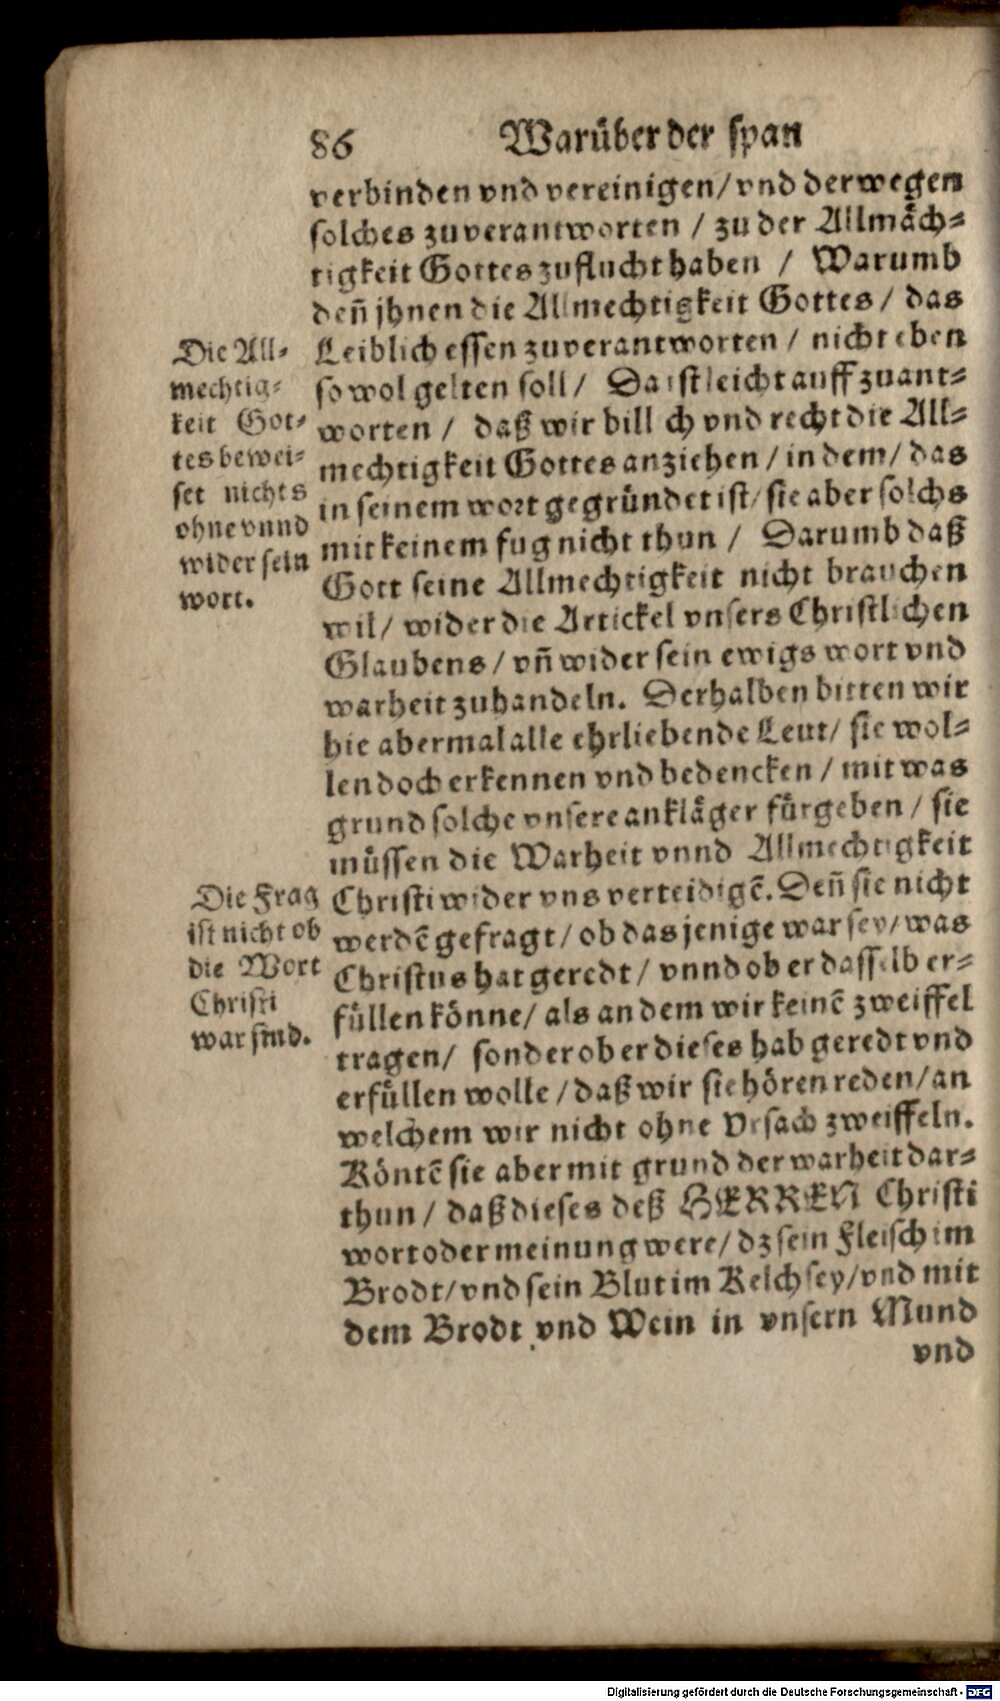 86 Warüber der span
verbinden vnd vereinigen/ vnd derwegen
solches zuverantworten / zu der Allmäch-
tigkeit Gottes zuflucht haben / Warumb
den̄ jhnen die Allmechtigkeit Gottes / das
Leiblich essen zuverantworten / nicht eben
so wol gelten soll / Da ist leicht auff zuant-
worten / daß wir billich vnd recht die All-
mechtigkeit Gottes anziehen / in dem / das
in seinem wort gegründet ist / sie aber solchs
mit keinem fug nicht thun / Darumb daß
Gott seine Allmechtigkeit nicht brauchen
wil / wider die Artickel vnsers Christlichen
Glaubens / vn̄ wider sein ewigs wort vnd
warheit zuhandeln. Derhalben bitten wir
hie abermal alle ehrliebende Leut / sie wol-
len doch erkennen vnd bedencken / mit was
grund solche vnsere ankläger fürgeben / sie
müssen die Warheit vnnd Allmechtigkeit
Christi wider vns verteidigē. Den̄ sie nicht
werdē gefragt / ob das jenige war sey / was
Christus hat geredt / vnnd ob er dasselb er-
füllen könne / als an dem wir keinē zweiffel
tragen / sonder ob er dieses hab geredt vnd
erfüllen wolle / daß wir sie hören reden / an
welchem wir nicht ohne Vrsach zweiffeln.
Köntē sie aber mit grund der warheit dar-
thun / daß dieses deß HERREN Christi
wort oder meinung were / dz sein Fleisch im
Brodt / vnd sein Blut im Kelch sey / vnd mit
dem Brodt vnd Wein in vnsern Mund
vnd
Die All-
mechtig-
keit Got-
tes bewei-
set nichts
ohne vnnd
wider sein
wort.
Die Frag
ist nicht ob
die Wort
Christi
war sind.
Digitalisierung gefördert durch die Deutsche Forschungsgemeinschaft - DFG